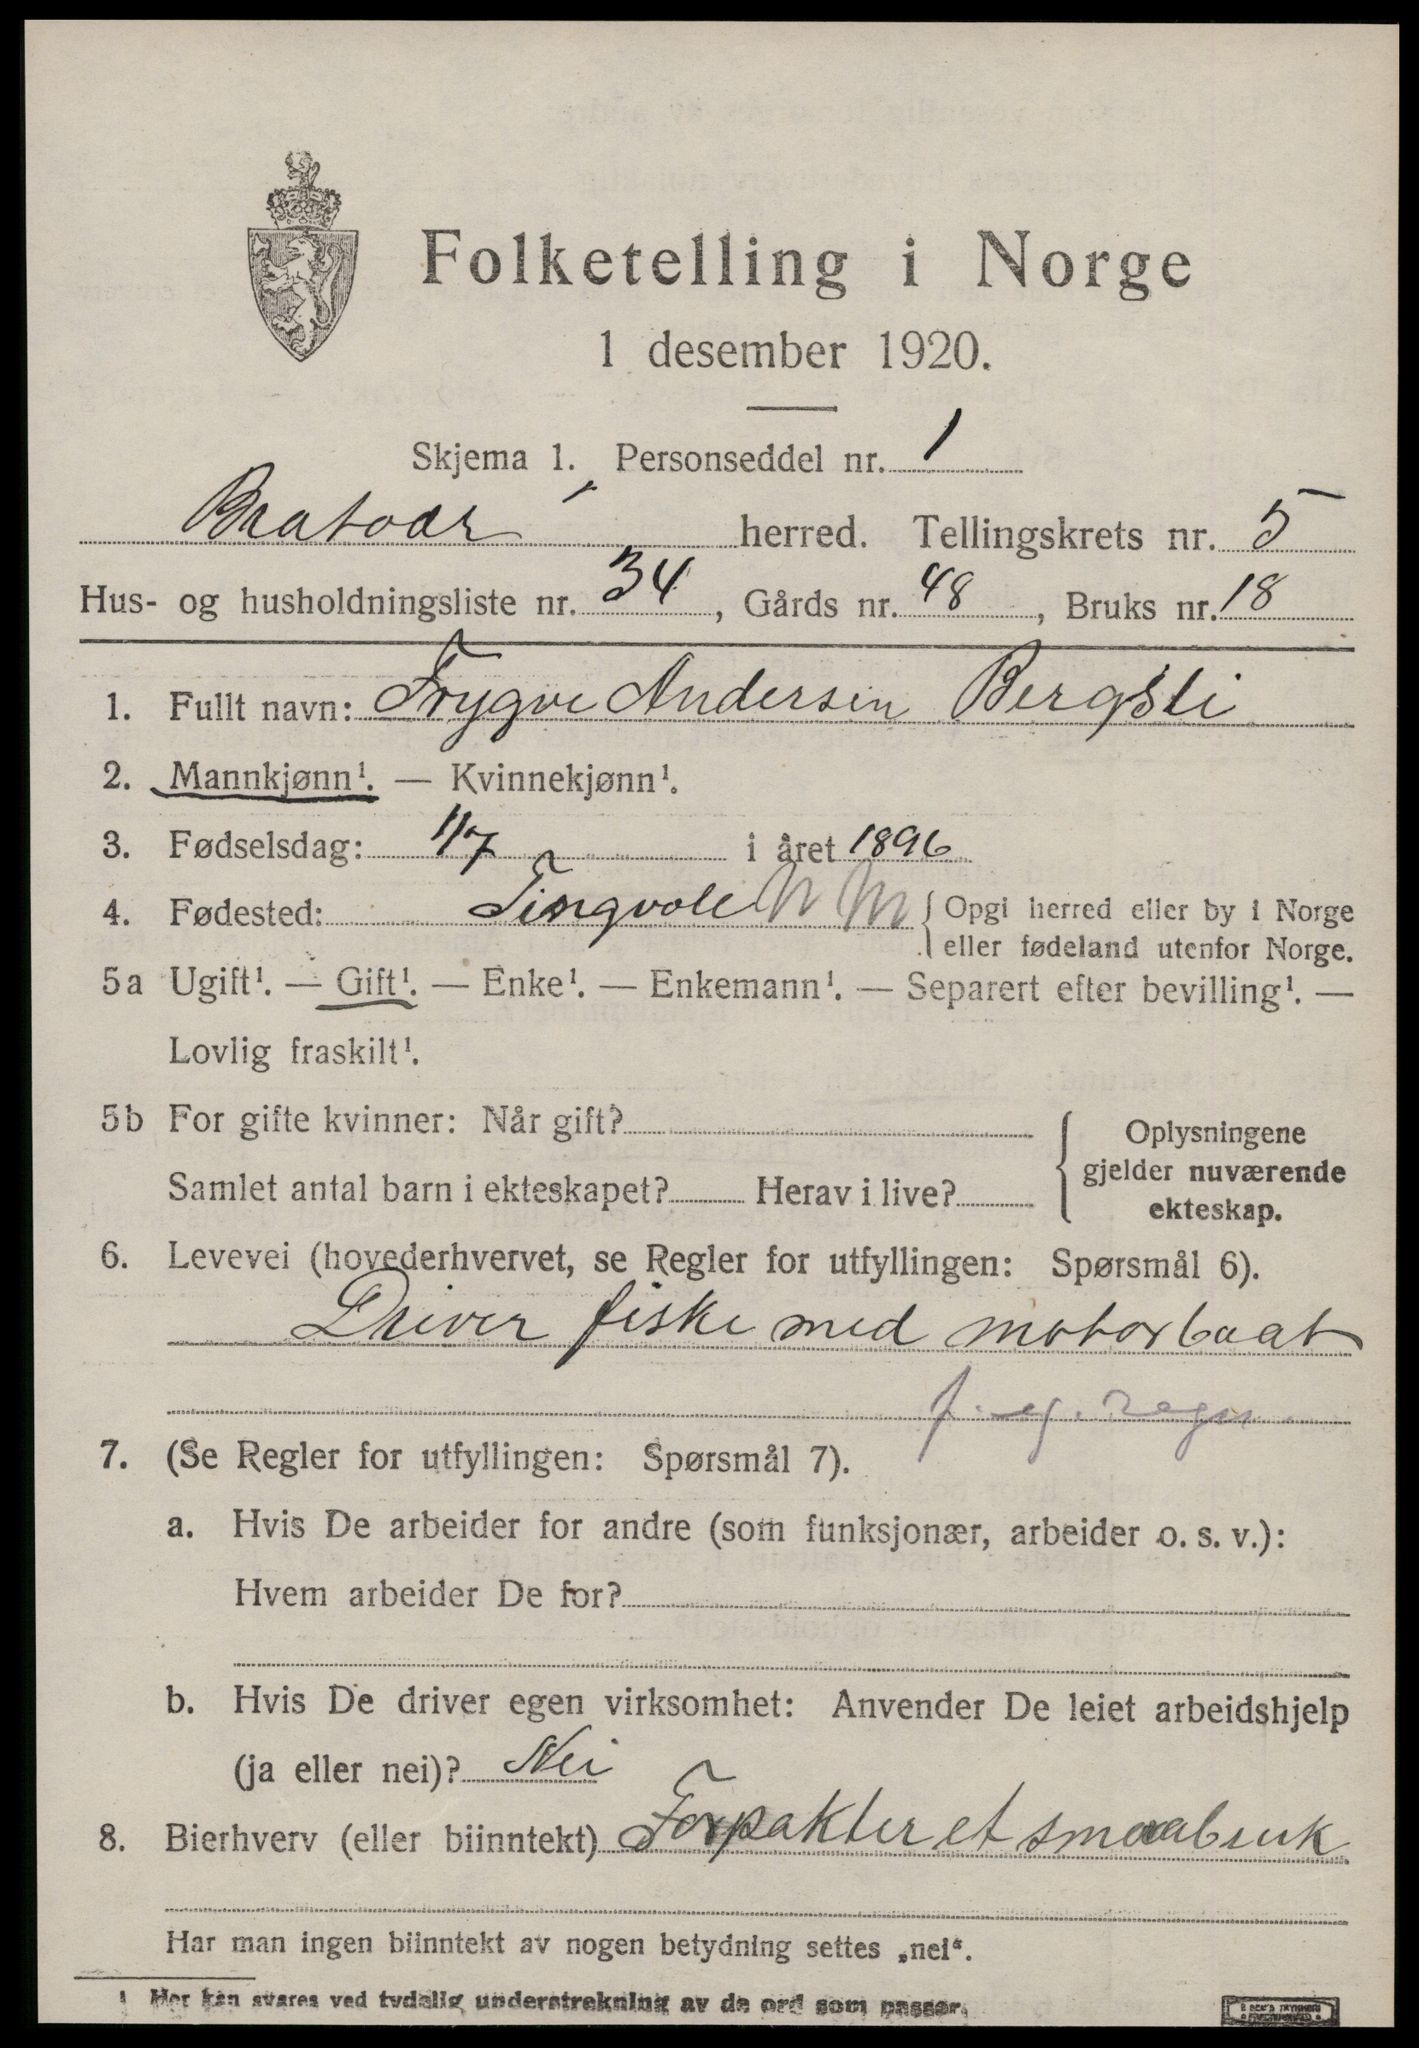 Folketelling i Norge
1 desember 1920.
Skjema 1. Personseddel nr. 1
Bratvær herred. Tellingskrets nr. 5
Hus- og husholdningsliste nr. 34, Gårds nr. 48, Bruks nr. 18
1. Fullt navn: Trygve Andersen Bergsli
2. Mannkjønn¹. — Kvinnekjønn¹.
3. Fødselsdag: 11/7 i året 1896
4. Fødested: Tingvole N M { Opgi herred eller by i Norge
eller fødeland utenfor Norge.
5a Ugift¹. — Gift¹. — Enke¹. — Enkemann¹. — Separert efter bevilling¹. —
Lovlig fraskilt¹.
5b For gifte kvinner: Når gift?
Samlet antal barn i ekteskapet? Herav i live?
{ Oplysningene
gjelder nuværende
ekteskap.
6. Levevei (hovederhvervet, se Regler for utfyllingen: Spørsmål 6).
Driver fiske med motorbaat
f. eg. regn
7. (Se Regler for utfyllingen: Spørsmål 7).
a. Hvis De arbeider for andre (som funksjonær, arbeider o. s. v.):
Hvem arbeider De for?
b. Hvis De driver egen virksomhet: Anvender De leiet arbeidshjelp
(ja eller nei)? Nei
8. Bierhverv (eller biinntekt) Forpakter et smaabruk
Har man ingen biinntekt av nogen betydning settes „nei“.
¹ Her kan svares ved tydelig understrekning av de ord som passer.